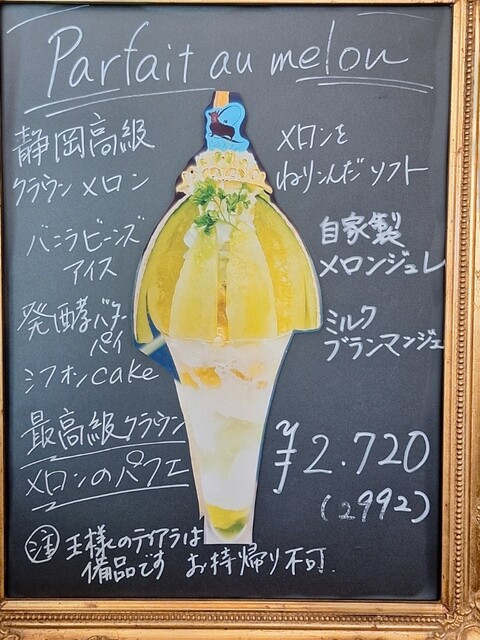 Parfait au melon
静岡高級
クラウンメロン
バニラビーンズ
アイス
発酵バター
パイ
シフォンcake
最高級クラウン
メロンのパフェ
メロンを
ねりこんだソフト
自家製
メロンジュレ
ミルク
ブランマンジェ
¥2.720
(2992)
注 王様のティアラは
備品です お持帰り不可.